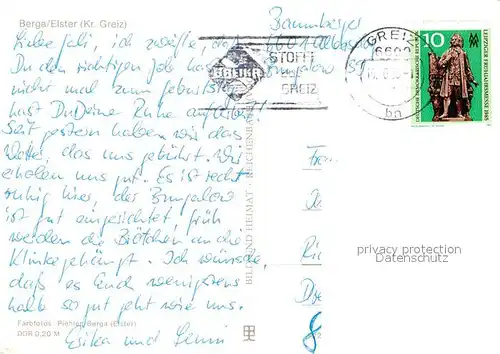 Berga/Elster (Kr. Greiz)
Baumberger
6601 Albersdorf
Bungalow
Liebe Gabi, ich weiß, daß
Du den richtigen Job hast
nicht mal zum Geburtstag
hast Du Deine Ruhe auf Arbeit!
Seit gestern haben wir das
Wetter, das uns gebührt. Wir
erholen uns gut. Es ist recht
ruhig hier, der Bungalow
ist gut eingerichtet, früh
werden die Brötchen an die
Klinke gehängt. Ich wünsche,
daß es Euch wenigstens
halb so gut geht wie uns.
Erika und
Farbfotos: Piehler, Berga (Elster)
DDR 0,20 M
BILD UND HEIMAT · REICHENBACH
GREIKA
STOFFE
AUS
GREIZ
GREIZ
6600
bn
10
DEUTSCHE DEMOKRATISCHE REPUBLIK
LEIPZIGER FRÜHJAHRSMESSE 1985
Frau
privacy protection
Datenschutz
8